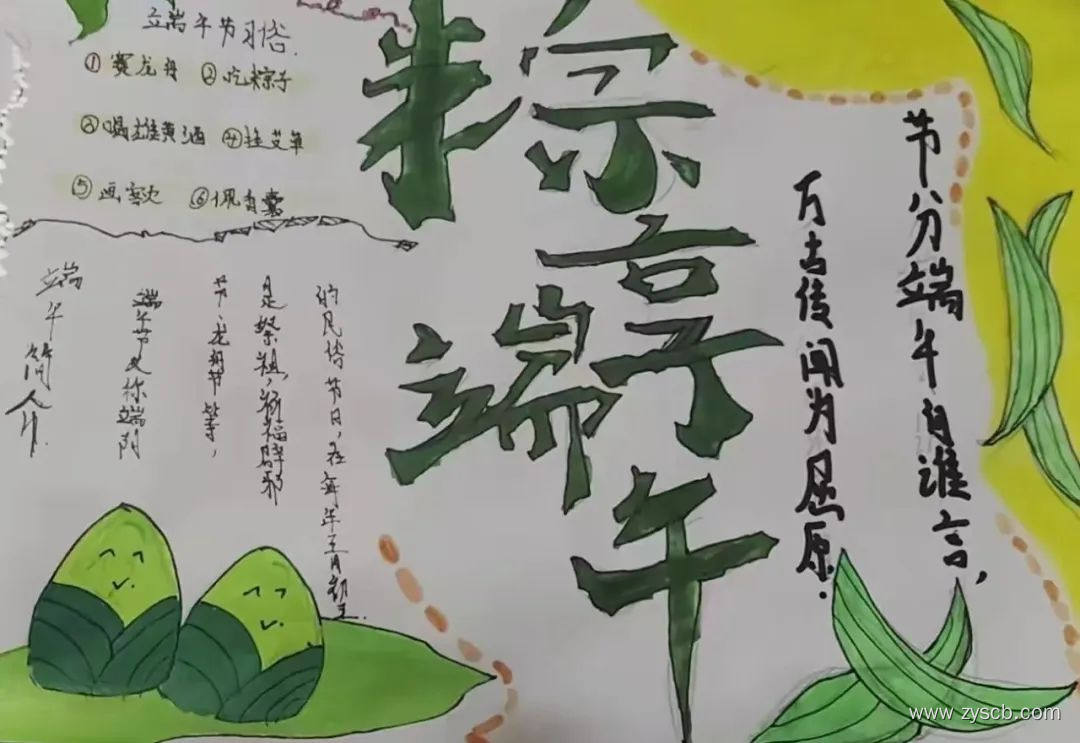 端午节习俗
①赛龙舟 ②吃粽子
③喝雄黄酒 ④挂艾草
⑤画额 ⑥佩香囊
粽享端午
节分端午自谁言，
万古传闻为屈原.
端午简介
端午节又称端阳
节、龙舟节等，
是祭祖，祈福辟邪
的民俗节日，在每年五月初五.
www.zyscb.com